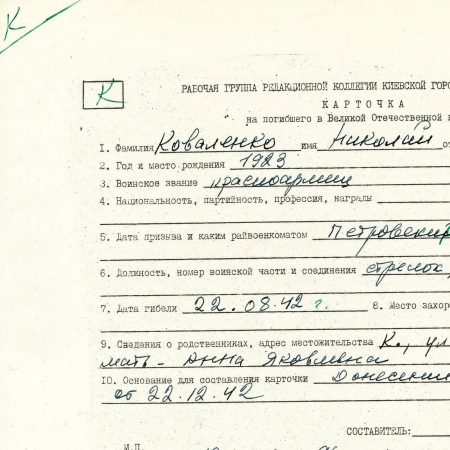 К
К
РАБОЧАЯ ГРУППА РЕДАКЦИОННОЙ КОЛЛЕГИИ КИЕВСКОЙ ГОРО
КАРТОЧКА
на погибшего в Великой Отечественной
1. Фамилия Коваленко имя Николай от
2. Год и место рождения 1923
3. Воинское звание красноармеец
4. Национальность, партийность, профессия, награды
5. Дата призыва и каким райвоенкоматом Петровский
6. Должность, номер воинской части и соединения стрелок,
7. Дата гибели 22.08.42 г. 8. Место захор
9. Сведения о родственниках, адрес местожительства К., ул
мать - Анна Яковлевна
10. Основание для составления карточки Донесение
от 22.12.42
СОСТАВИТЕЛЬ:
М.П.